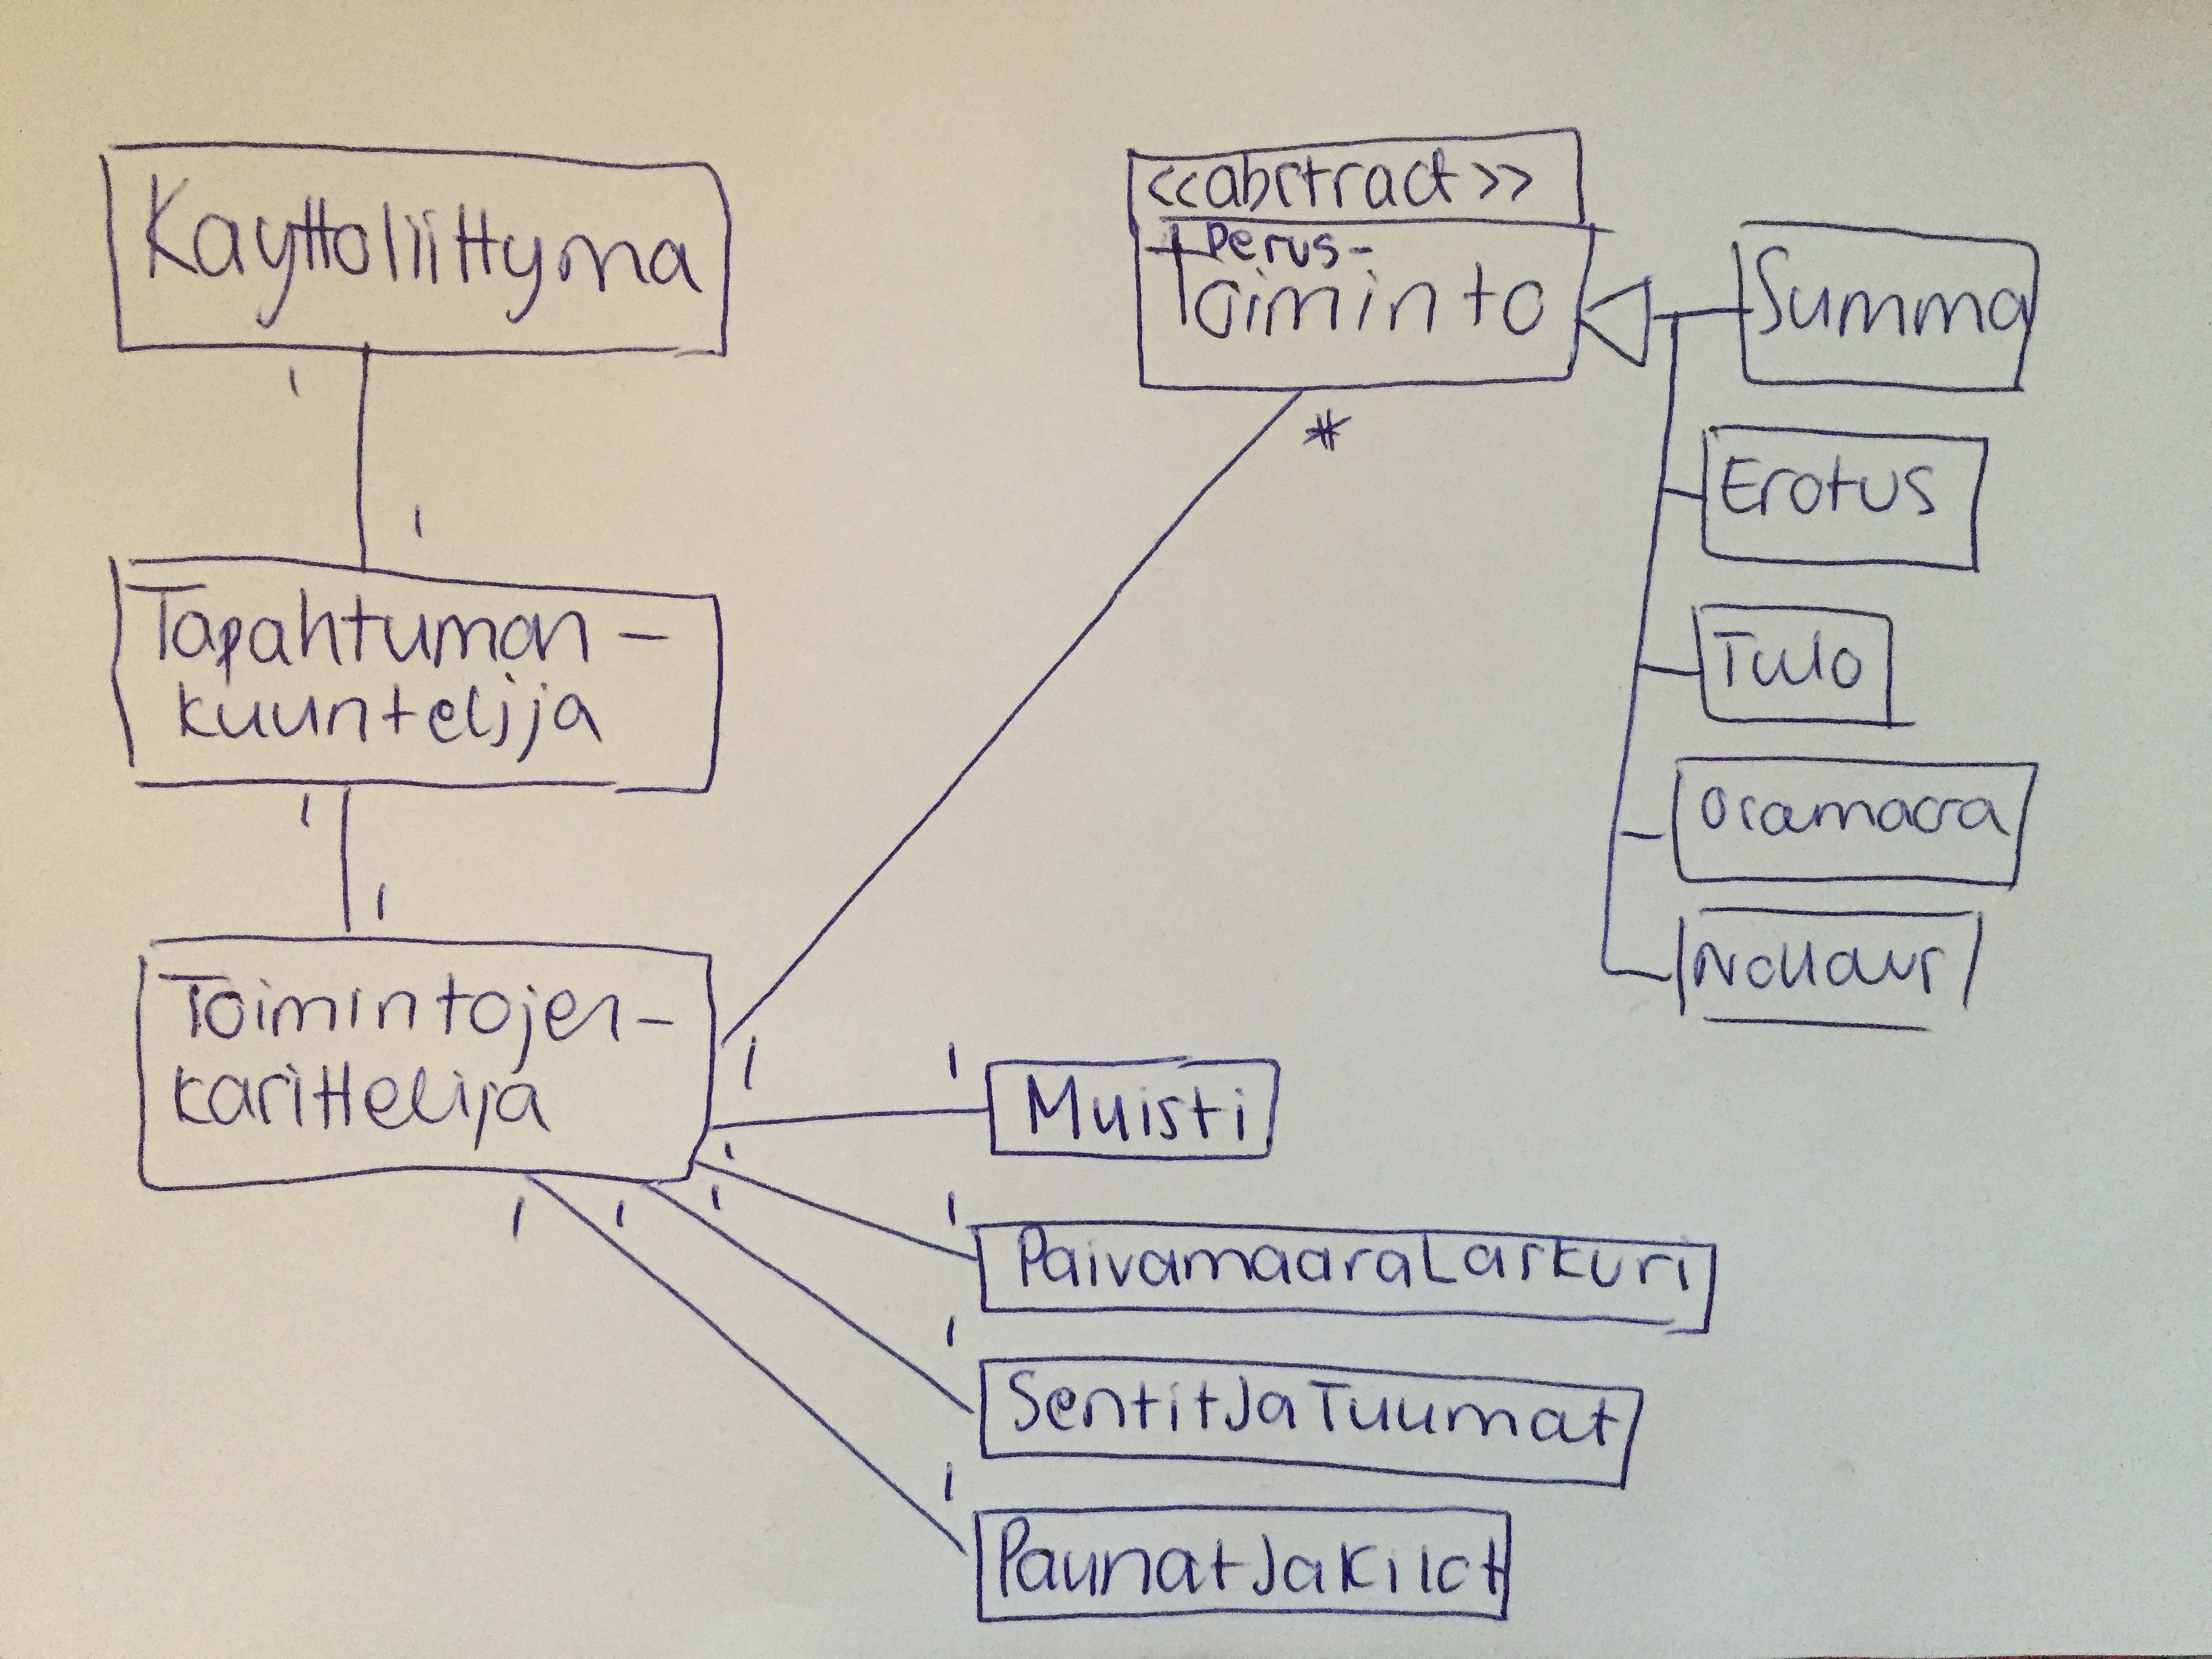 Kayttoliittyma
1
1
Tapahtuman-
kuuntelija
1
1
Toimintojen-
karittelija
<<abstract>>
Perus-
Toiminto
*
Summa
Erotus
Tulo
Osamaara
Nollaus
1
1
Muisti
1
1
1
PaivamaaraLaskuri
1
1
SentitJaTuumat
1
1
PaunatJaKilot